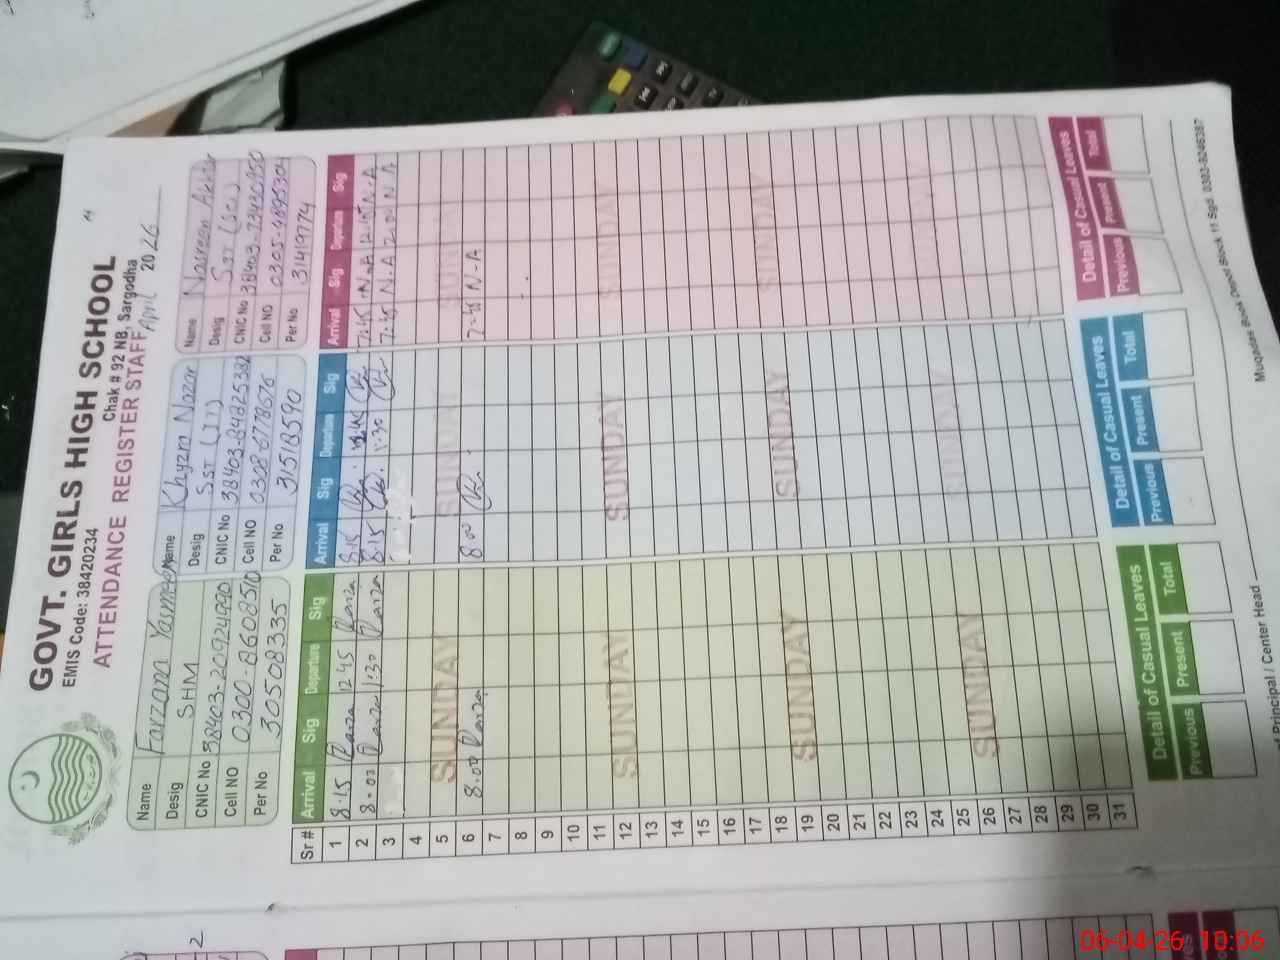 GOVT. GIRLS HIGH SCHOOL
EMIS Code: 38420234
Chak # 92 NB, Sargodha
ATTENDANCE REGISTER STAFF April 2026
Name Farzana Yasmeen
Desig SHM
CNIC No 38403-2092499-0
Cell NO 0300-8608510
Per No 30508335
Name Khyzra Nazar
Desig SST (IT)
CNIC No
Cell NO 03086778676
Per No 31518590
Name Nasreen Akhtar
Desig SST (Sci)
CNIC No
Cell NO 0305-4895304
Per No 31419774
Sr# Arrival Sig Departure Sig Arrival Sig Departure Sig Arrival Sig Departure Sig
1 8.15 12:45 8.15 12:45 7:45 N-A 12:45 N-A
2 8.03 1:30 8.15 1:30 7:45 N.A N.A
3
4
5 SUNDAY SUNDAY SUNDAY
6 8.00 8.00 7:45 N-A
7
8
9
10
11
12 SUNDAY SUNDAY SUNDAY
13
14
15
16
17
18
19 SUNDAY SUNDAY SUNDAY
20
21
22
23
24
25
26 SUNDAY SUNDAY SUNDAY
27
28
29
30
31
Detail of Casual Leaves
Previous Present Total
Detail of Casual Leaves
Previous Present Total
Detail of Casual Leaves
Previous Present Total
Principal / Center Head
Muqaddas Book Depot Block 11 Sgd. 0303-9246387
2
06-04-26 10:06